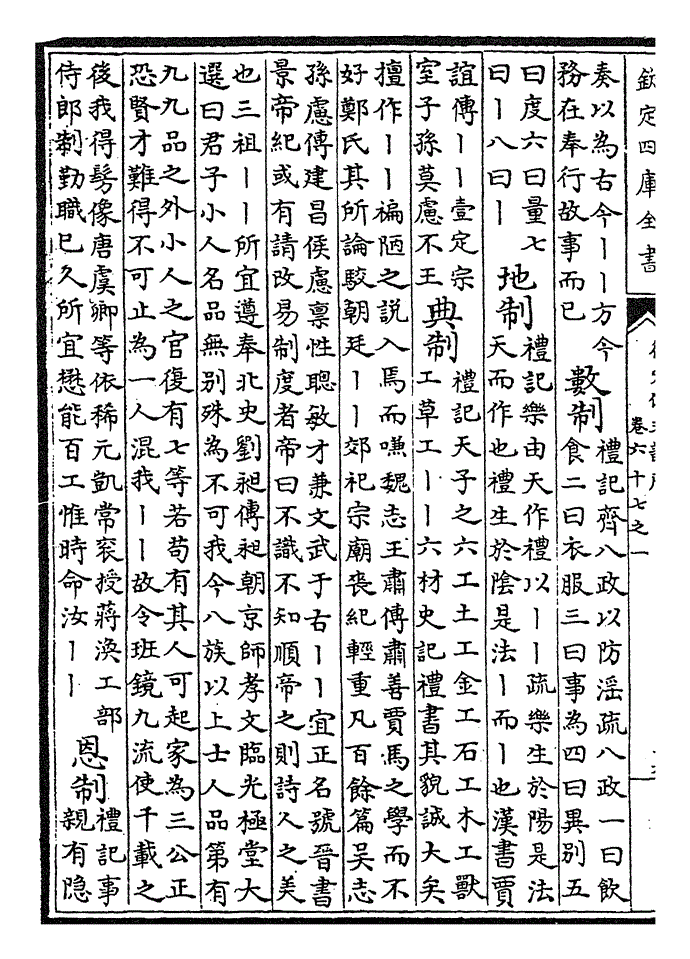 欽定四庫全書
卷六十七之一
奏以為古今丨丨方今
務在奉行故事而已
數制
禮記齊八政以防淫疏八政一曰飲
食二曰衣服三曰事為四曰異別五
曰度六曰量七
曰丨八曰丨
地制
禮記樂由天作禮以丨丨疏樂生於陽是法
天而作也禮生於陰是法丨而丨也漢書賈
誼傳丨丨壹定宗
室子孫莫慮不王
典制
禮記天子之六工土工金工石工木工獸
工草工丨丨六材史記禮書其貌誠大矣
擅作丨丨褊陋之說入焉而嗛魏志王肅傳肅善賈馬之學而不
好鄭氏其所論駮朝廷丨丨郊祀宗廟喪紀輕重凡百餘篇吳志
孫慮傳建昌侯慮禀性聰敏才兼文武于古丨丨宜正名號晉書
景帝紀或有請改易制度者帝曰不識不知順帝之則詩人之美
也三祖丨丨所宜遵奉北史劉昶傳昶朝京師孝文臨光極堂大
選曰君子小人名品無別殊為不可我今八族以上士人品第有
九九品之外小人之官復有七等若苟有其人可起家為三公正
恐賢才難得不可止為一人混我丨丨故令班鏡九流使千載之
後我得髣像唐虞卿等依稀元凱常衮授蔣渙工部
侍郎制勤職已久所宜懋能百工惟時命汝丨丨
恩制
禮記事
親有隐